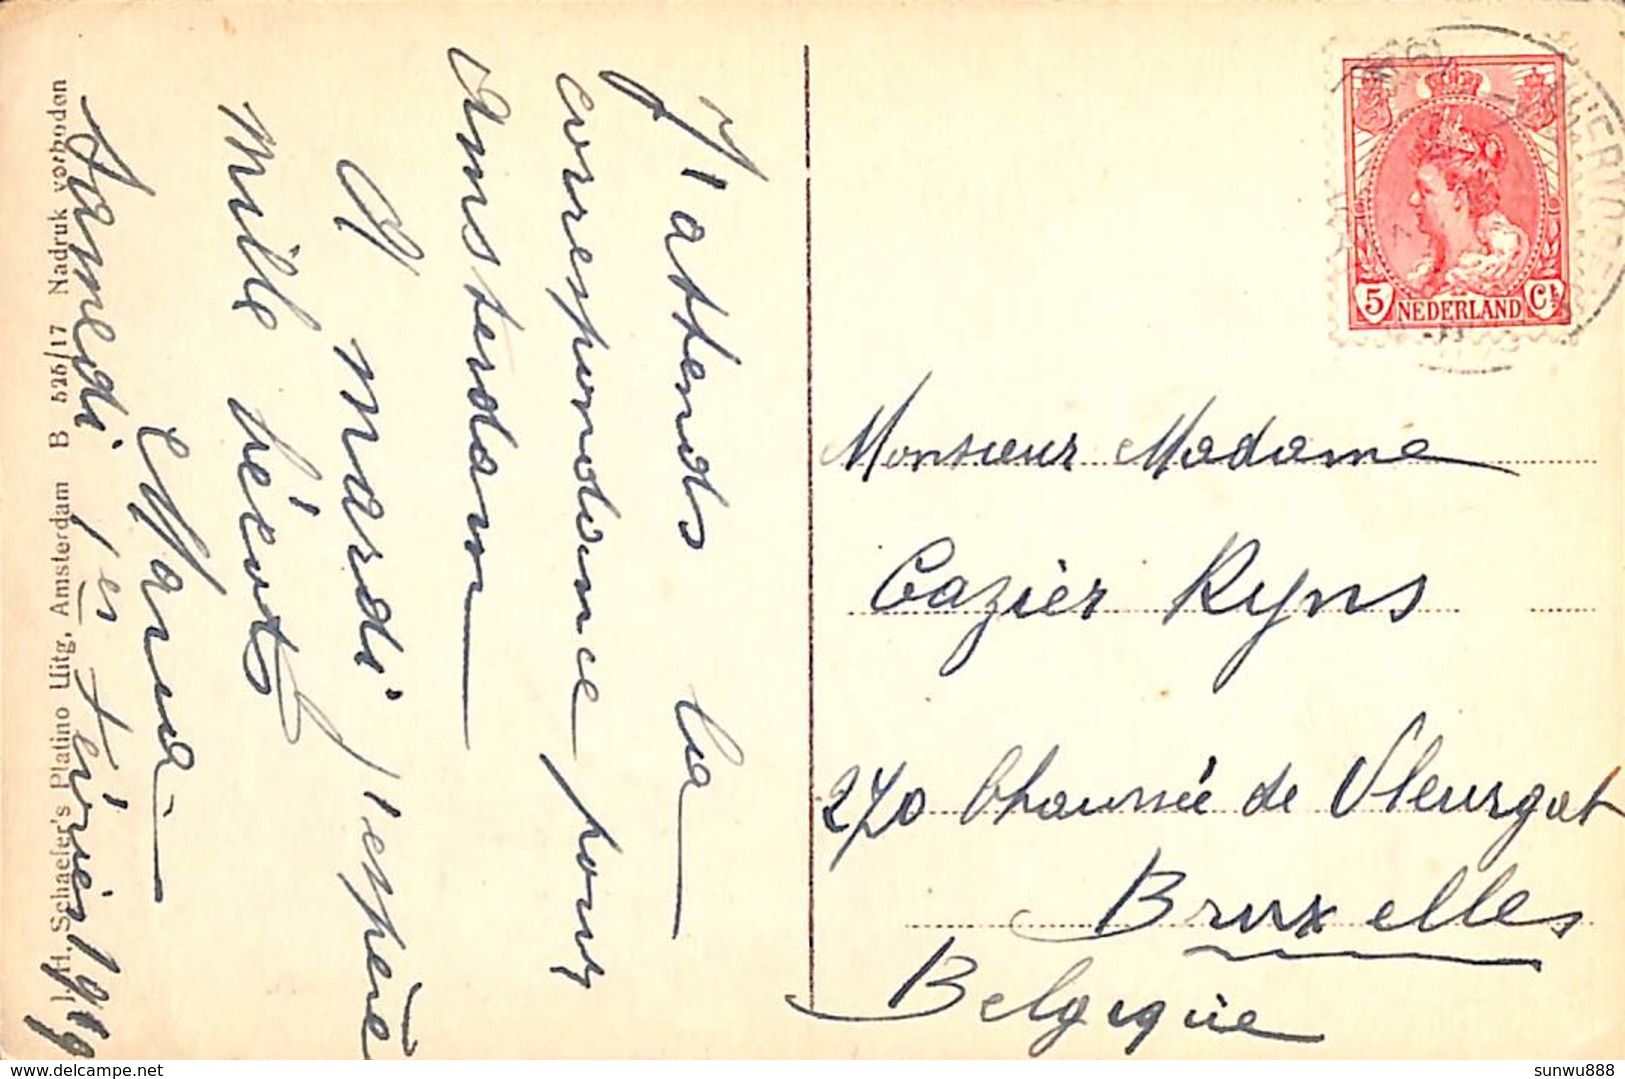 J'attends la
correspondance pour
Amsterdam
A mardi j'espère
Mille bécots
Maria
Samedi 1er Février 1919
J. H. Schaefer's Platino Uitg. Amsterdam B 525/17 Nadruk verboden
5 NEDERLAND Ct
Monsieur Madame
Cazier Ryns
270 Chaussée de Vleurgat
Bruxelles
Belgique
delcampe.net
sunwu888